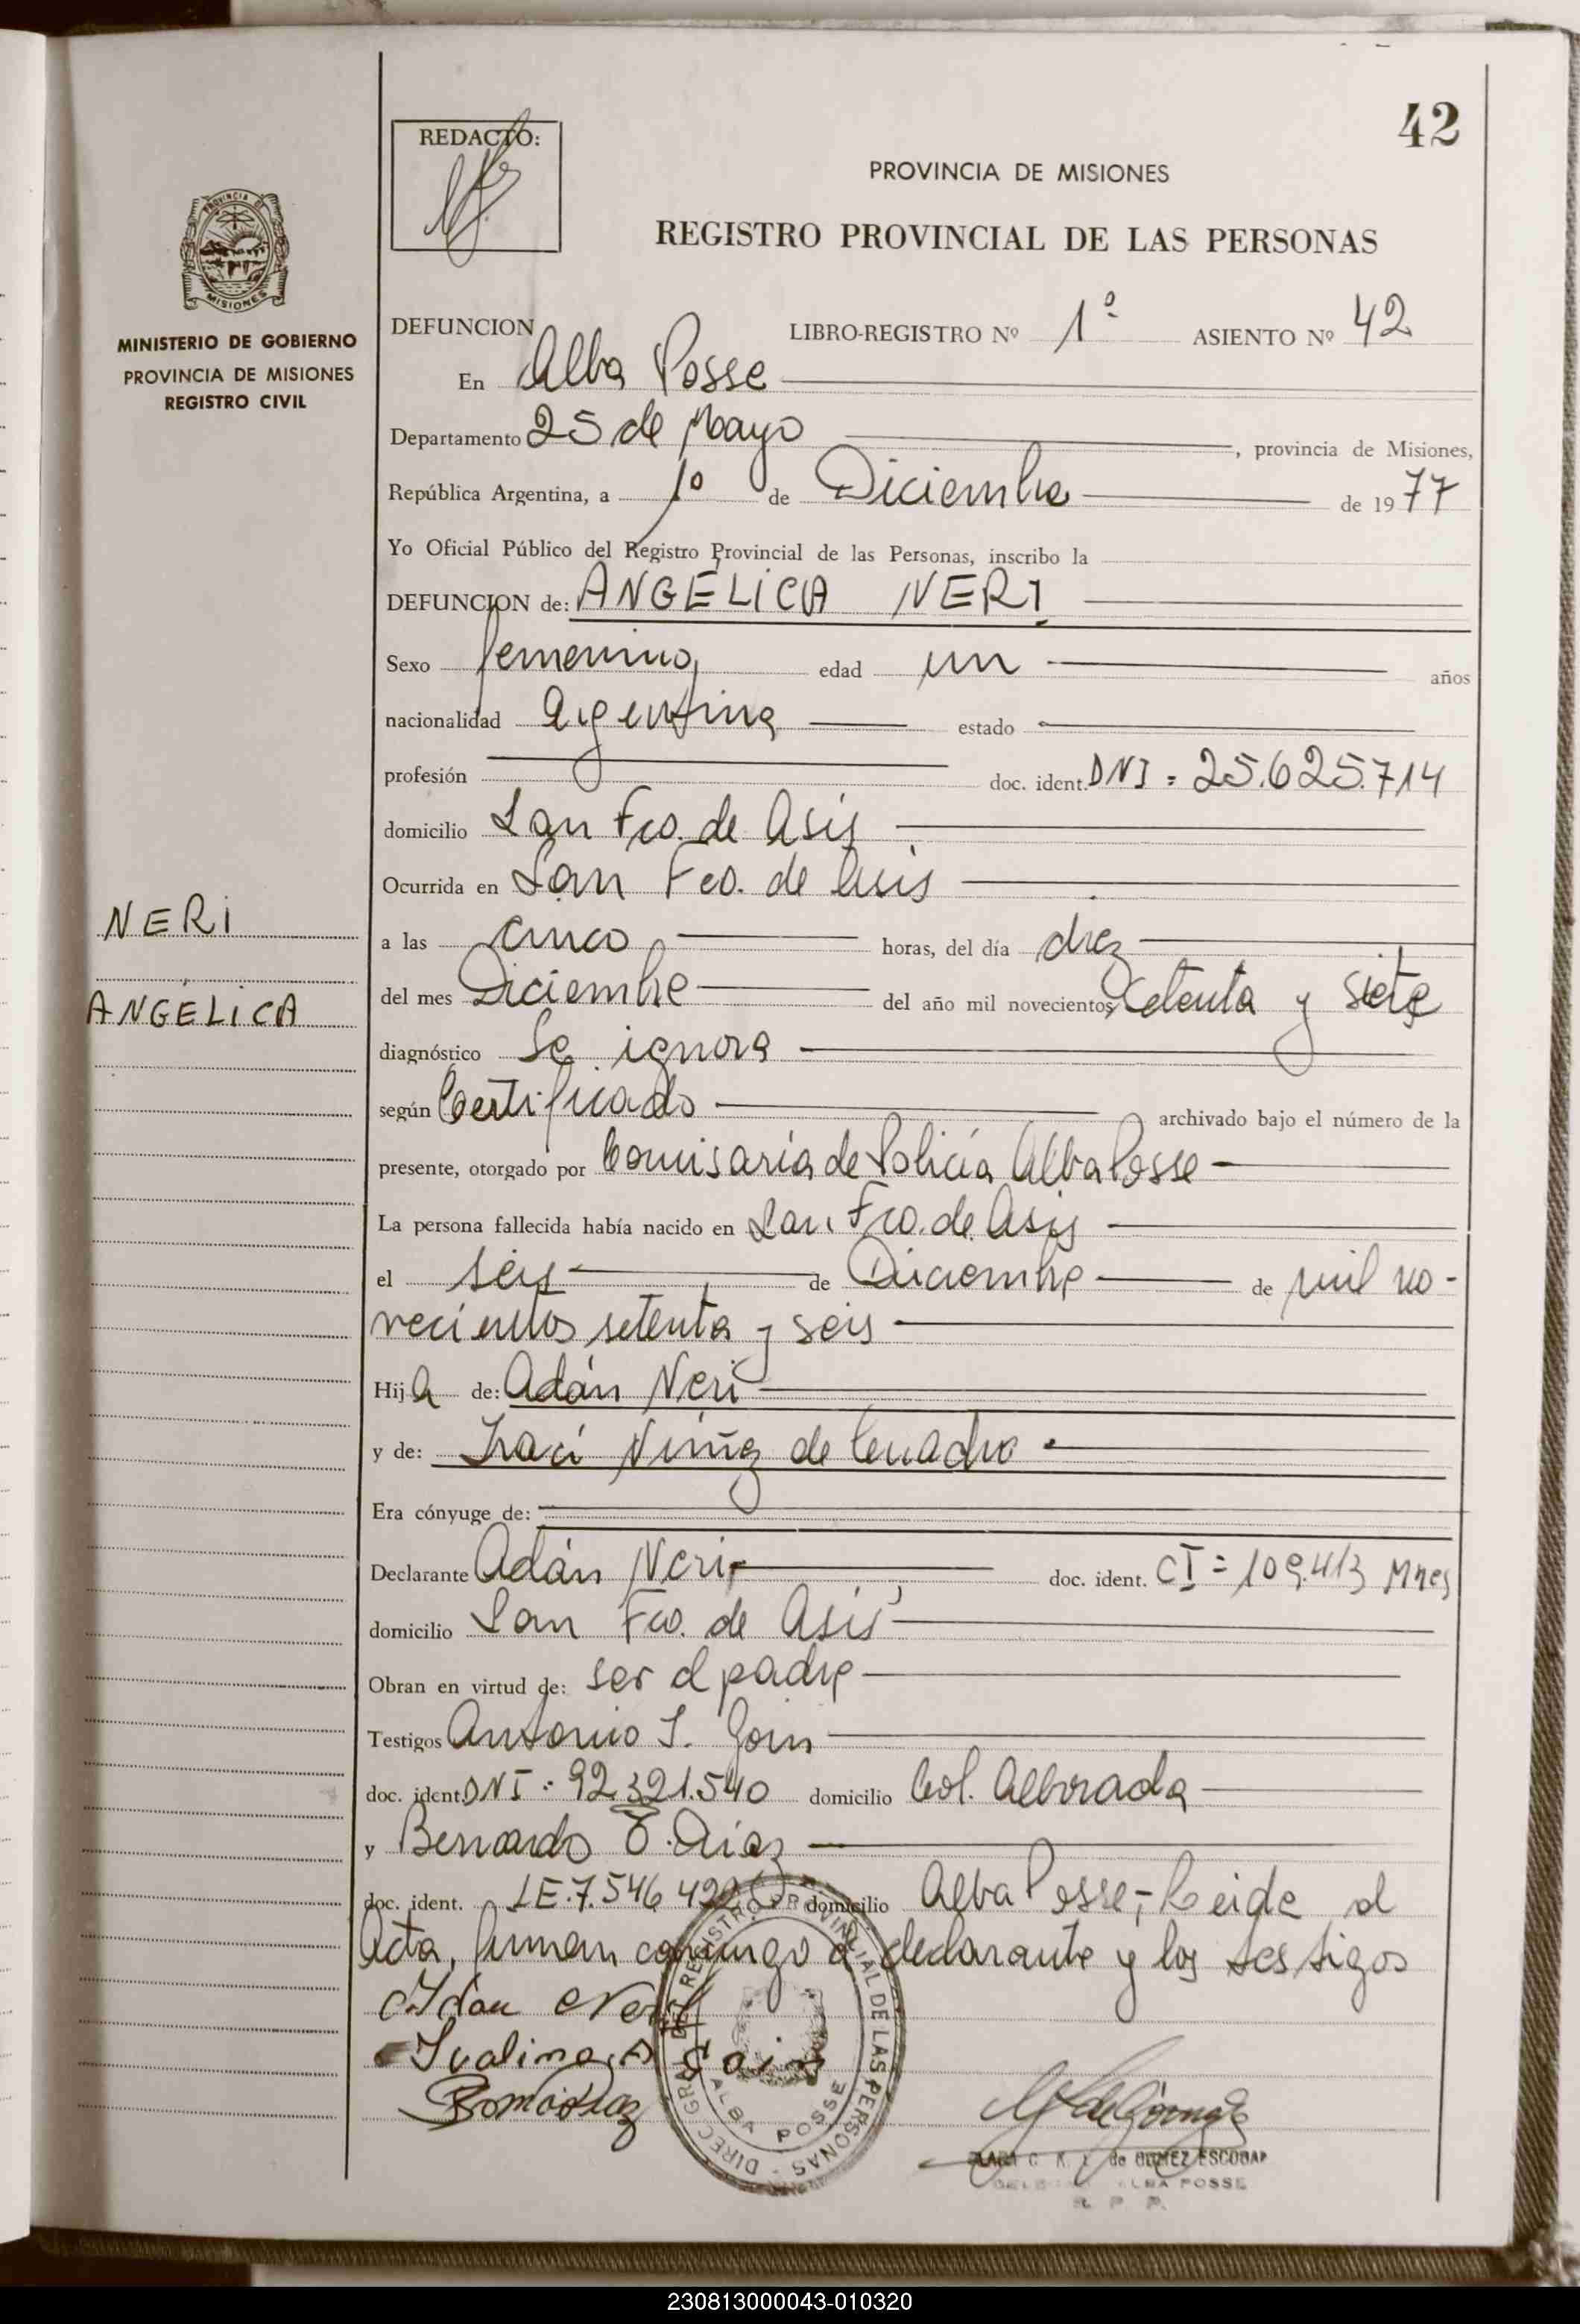 42
REDACTO:
PROVINCIA DE MISIONES
REGISTRO PROVINCIAL DE LAS PERSONAS
PROVINCIA DE
MISIONES
MINISTERIO DE GOBIERNO
PROVINCIA DE MISIONES
REGISTRO CIVIL
DEFUNCION LIBRO-REGISTRO Nº 1º ASIENTO Nº 42
En Alba Posse
Departamento 25 de Mayo, provincia de Misiones,
República Argentina, a 1º de Diciembre de 1977
Yo Oficial Público del Registro Provincial de las Personas, inscribo la
DEFUNCION de: ANGÉLICA NERI
Sexo femenino, edad un años
nacionalidad Argentina estado
profesión doc. ident. DNI = 25.625.714
domicilio San Fco. de Asís
Ocurrida en San Fco. de Asis
NERI
a las cinco horas, del día diez
ANGÉLICA
del mes Diciembre del año mil novecientos setenta y siete
diagnóstico Se ignora
según Certificado archivado bajo el número de la
presente, otorgado por Comisaría de Policía Alba Posse
La persona fallecida había nacido en San Fco. de Asis
el seis de Diciembre de mil no-
vecientos setenta y seis
Hija de: Adán Neri
y de: de Cuadro
Era cónyuge de:
Declarante Adán Neri doc. ident. CI = 109.413 Mnes
domicilio San Fco. de Asís
Obran en virtud de: ser el padre
Testigos Antonio S.
doc. ident. DNI: 92.321.540 domicilio Col. Alborada
y Bernardo Díaz
doc. ident. LE.7.546 domicilio Alba Posse,- Leida el
Acta, firman conmigo el declarante y los testigos
Adan Neri
DIREC. GRAL. DEL REGISTRO PROVINCIAL DE LAS PERSONAS
ALBA POSSE
de GOMEZ ESCOBAR
ALBA POSSE
R. P. P.
230813000043-010320